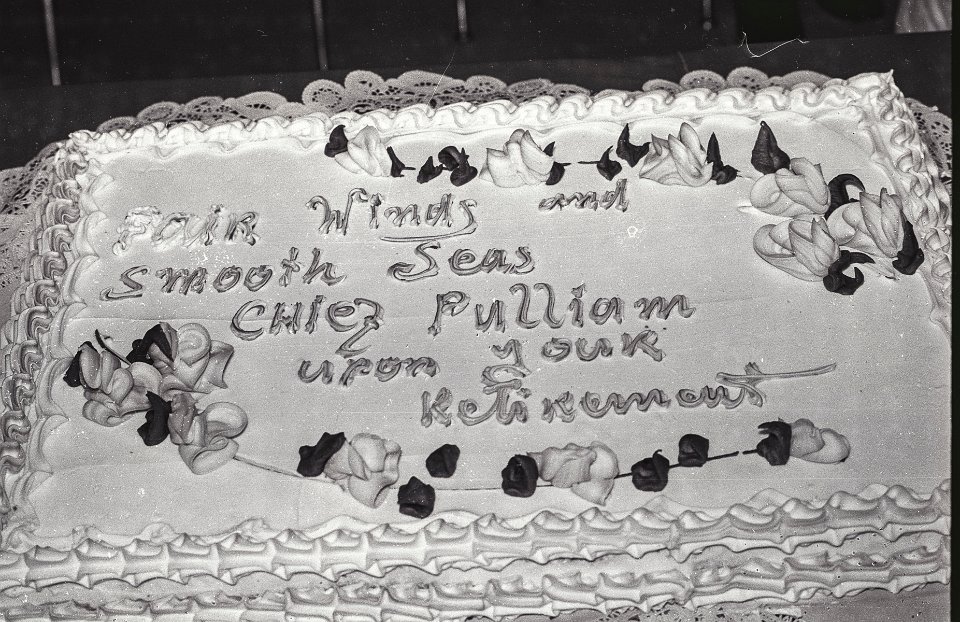 Fair Winds and
Smooth Seas
CHIEf Pulliam
upon your
Retirement